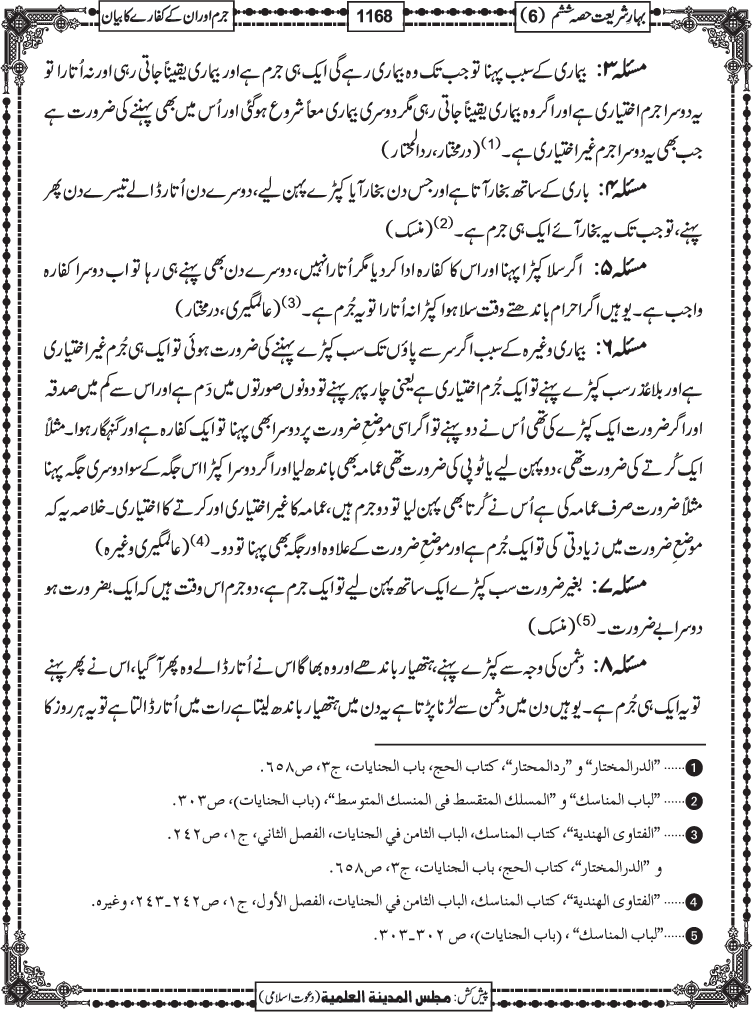 بہارِ شریعت حصہ ششم (6)
1168
جرم اور ان کے کفارے کا بیان
مسئلہ ۳: بیماری کے سبب پہنا تو جب تک وہ بیماری رہے گی ایک ہی جرم ہے اور بیماری یقیناً جاتی رہی اور نہ اُتارا تو
یہ دوسرا جرم اختیاری ہے اور اگر وہ بیماری یقیناً جاتی رہی مگر دوسری بیماری معاً شروع ہوگئی اور اُس میں بھی پہننے کی ضرورت ہے
جب بھی یہ دوسرا جرم غیر اختیاری ہے۔ (1) (درمختار، ردالمحتار)
مسئلہ ۴: باری کے ساتھ بخار آتا ہے اور جس دن بخار آیا کپڑے پہن لیے، دوسرے دن اُتار ڈالے تیسرے دن پھر
پہنے، تو جب تک یہ بخار آئے ایک ہی جرم ہے۔ (2) (منسک)
مسئلہ ۵: اگر سلا کپڑا پہنا اور اس کا کفارہ ادا کر دیا مگر اُتارا نہیں، دوسرے دن بھی پہنے ہی رہا تو اب دوسرا کفارہ
واجب ہے۔ یوہیں اگر احرام باندھتے وقت سلا ہوا کپڑا نہ اُتارا تو یہ جُرم ہے۔ (3) (عالمگیری، درمختار)
مسئلہ ۶: بیماری وغیرہ کے سبب اگر سر سے پاؤں تک سب کپڑے پہننے کی ضرورت ہوئی تو ایک ہی جُرم غیر اختیاری
ہے اور بلاعُذر سب کپڑے پہنے تو ایک جُرم اختیاری ہے یعنی چار پہر پہنے تو دونوں صورتوں میں دَم ہے اور اس سے کم میں صدقہ
اور اگر ضرورت ایک کپڑے کی تھی اُس نے دو پہنے تو اگر اسی موضع ضرورت پر دوسرا بھی پہنا تو ایک کفارہ ہے اور گنہگار ہوا۔ مثلاً
ایک کُرتے کی ضرورت تھی، دو پہن لیے یا ٹوپی کی ضرورت تھی عمامہ بھی باندھ لیا اور اگر دوسرا کپڑا اس جگہ کے سوا دوسری جگہ پہنا
مثلاً ضرورت صرف عمامہ کی ہے اُس نے کُرتا بھی پہن لیا تو دو جرم ہیں، عمامہ کا غیر اختیاری اور کرتے کا اختیاری۔ خلاصہ یہ کہ
موضع ضرورت میں زیادتی کی تو ایک جُرم ہے اور موضع ضرورت کے علاوہ اور جگہ بھی پہنا تو دو۔ (4) (عالمگیری وغیرہ)
مسئلہ ۷: بغیر ضرورت سب کپڑے ایک ساتھ پہن لیے تو ایک جرم ہے، دو جرم اس وقت ہیں کہ ایک بضرورت ہو
دوسرا بے ضرورت۔ (5) (منسک)
مسئلہ ۸: دشمن کی وجہ سے کپڑے پہنے، ہتھیار باندھے اور وہ بھاگا اس نے اُتار ڈالے وہ پھر آگیا، اس نے پھر پہنے
تو یہ ایک ہی جُرم ہے۔ یوہیں دن میں دشمن سے لڑنا پڑتا ہے یہ دن میں ہتھیار باندھ لیتا ہے رات میں اُتار ڈالتا ہے تو یہ ہر روز کا
1 ...... ”الدرالمختار“ و ”ردالمحتار“، كتاب الحج، باب الجنايات، ج۳، ص۶۵۸.
2 ...... ”لباب المناسك“ و ”المسلك المتقسط فى المنسك المتوسط“، (باب الجنايات)، ص۳۰۳.
3 ...... ”الفتاوى الهندية“، كتاب المناسك، الباب الثامن في الجنايات، الفصل الثاني، ج۱، ص۲۴۲.
و ”الدرالمختار“، كتاب الحج، باب الجنايات، ج۳، ص۶۵۸.
4 ...... ”الفتاوى الهندية“، كتاب المناسك، الباب الثامن في الجنايات، الفصل الأول، ج۱، ص۲۴۲-۲۴۳، وغيره.
5 ...... ”لباب المناسك“ ، (باب الجنايات)، ص ۳۰۲-۳۰۳.
پیش کش: مجلس المدينة العلمية (دعوت اسلامی)